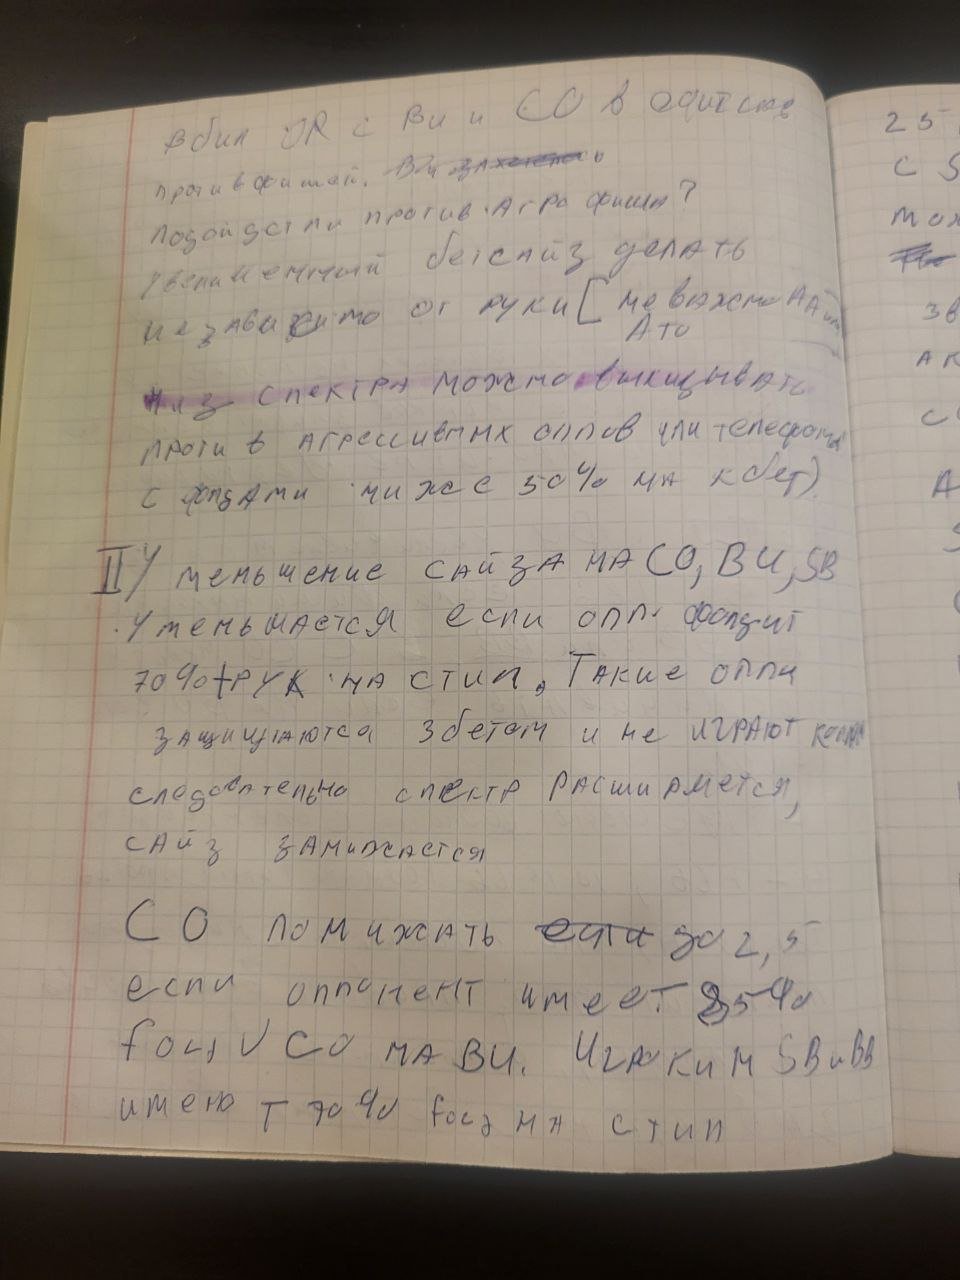 вбил OR с BU и CO в
против фишей.
подойдет ли против агро фиша?
увеличенный бетсайз делать
независимо от руки [ не важно AA или
ATo
низ спектра можно выкидывать
против агрессивных оппов или телефонов
с фолдами ниже 50% на к бет)
II Уменьшение сайза на CO, BU, SB
Уменьшается если опп фолдит
70%+ рук на стил. Такие оппы
защищаются 3бетом и не играют
следовательно спектр расширяется,
сайз занижается
CO понижать до 2,5
если оппонент имеет 85%
fold V CO на BU. Игроки SB и BB
имеют 70% fold на стил
25
с
мож
зв